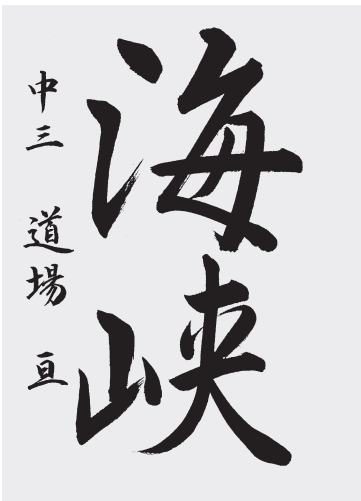 海峡
中三 道場 亘